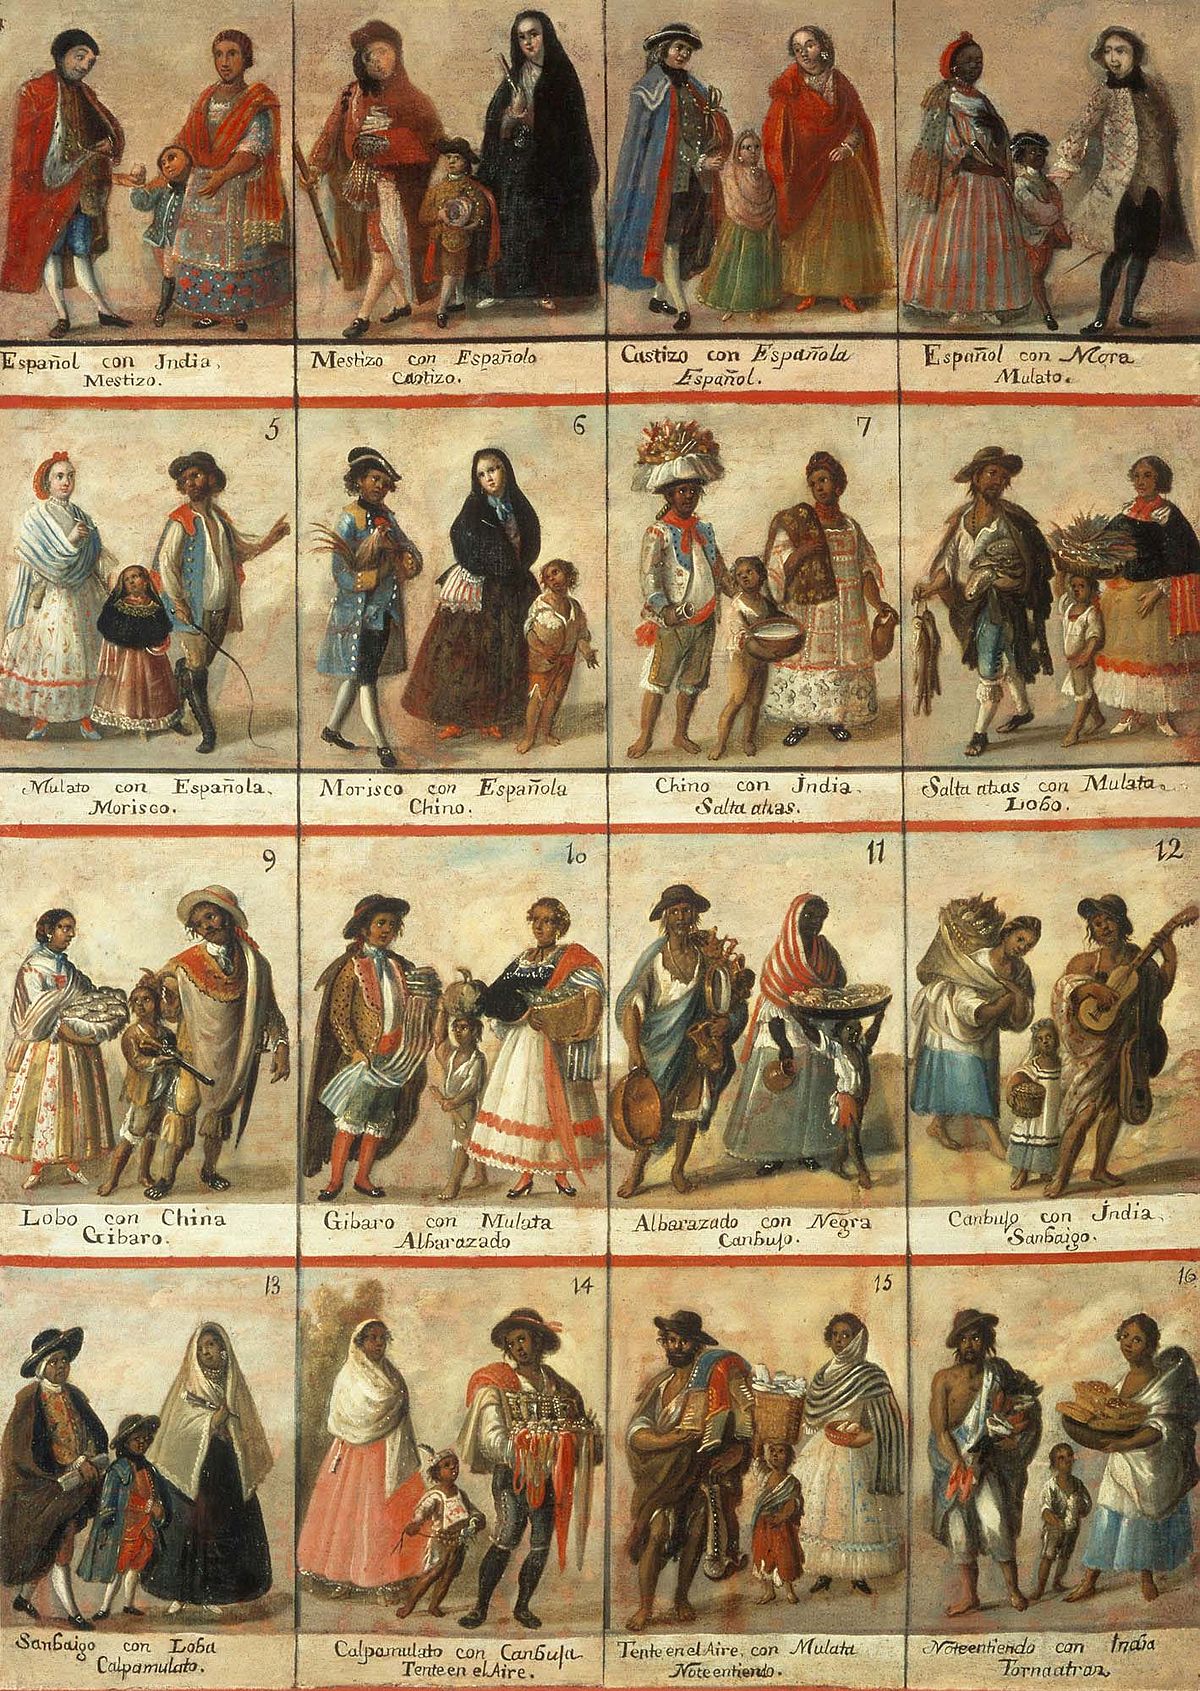 Español con India,
Mestizo.
Mestizo con Española
Castizo.
Castizo con Española
Español.
Español con Mora
Mulato.
5
Mulato con Española.
Morisco.
6
Morisco con Española
Chino.
7
Chino con India.
Salta atras.
Salta atras con Mulata.
Lobo.
9
Lobo con China
Gibaro.
10
Gibaro con Mulata
Albarazado
11
Albarazado con Negra
Canbujo.
12
Canbujo con India.
Sanbaigo.
13
Sanbaigo con Loba
Calpamulato.
14
Calpamulato con Canbuja
Tente en el Aire.
15
Tente en el Aire, con Mulata
Noteentiendo.
16
Noteentiendo con India
Tornaatras